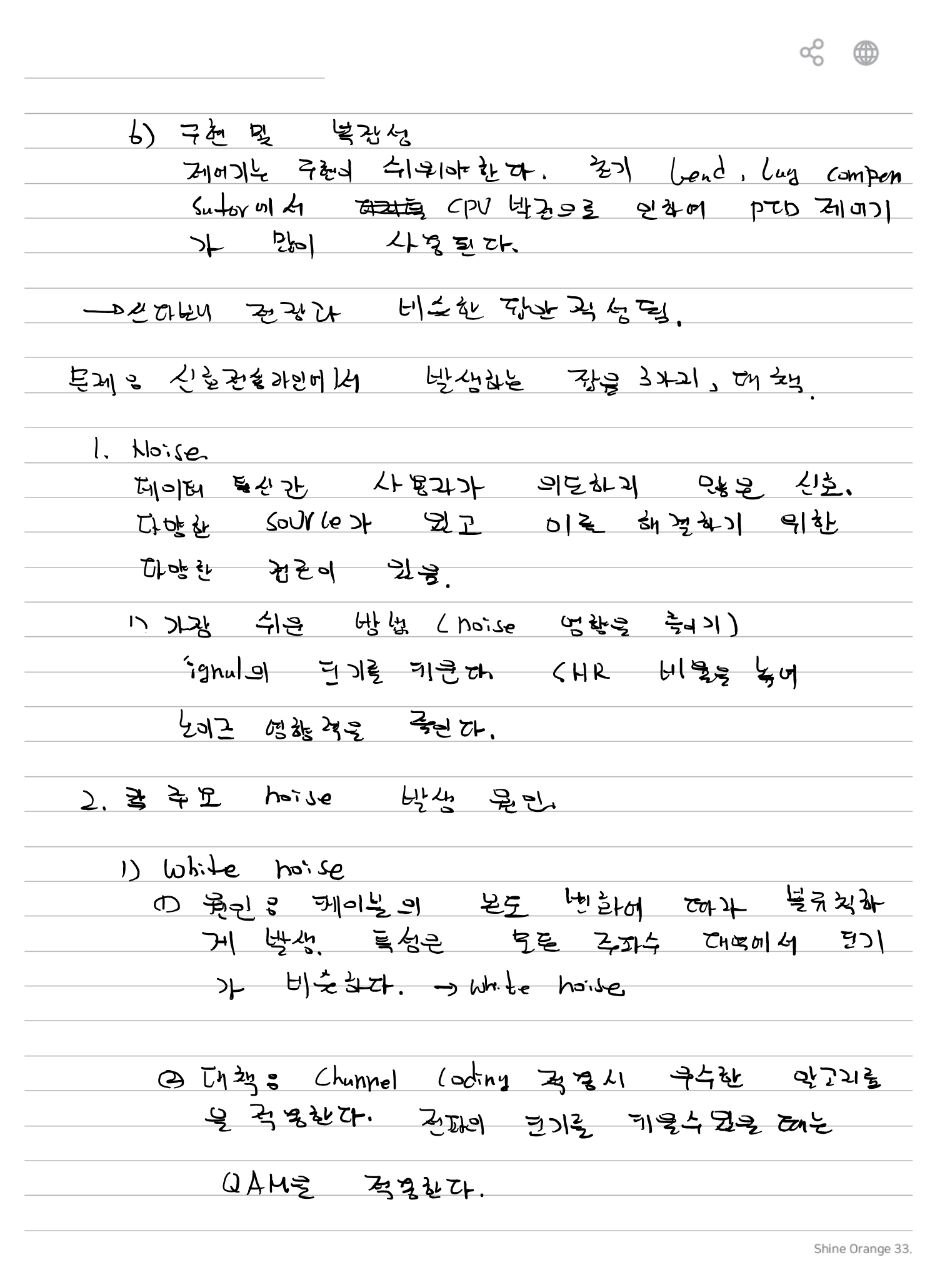 6) 구현 및 복잡성
제어기는 구현이 쉬워야한다. 초기 Lead, Lag compen
sator에서 CPU 발전으로 인하여 PID 제어기
가 많이 사용된다.
→ 쓰다보니 전장과 비슷한 답안 작성됨.
문제 : 신호전송라인에서 발생하는 잡음 3가지, 대책.
1. Noise
데이터 통신간 사용자가 의도하지 않은 신호.
다양한 source가 있고 이를 해결하기 위한
다양한 접근이 있음.
1) 가장 쉬운 방법 (noise 영향을 줄이기)
ignal의 크기를 키운다. SNR 비율을 높여
노이즈 영향력을 줄인다.
2. 각 주요 noise 발생 원인.
1) White noise
① 원인 : 케이블의 온도 변화에 따라 불규칙하
게 발생. 특성은 모든 주파수 대역에서 크기
가 비슷하다. → White noise
② 대책 : Channel Coding 적용시 우수한 알고리즘
을 적용한다. 전파의 크기를 키울수 있을 때는
QAM을 적용한다.
Shine Orange 33.